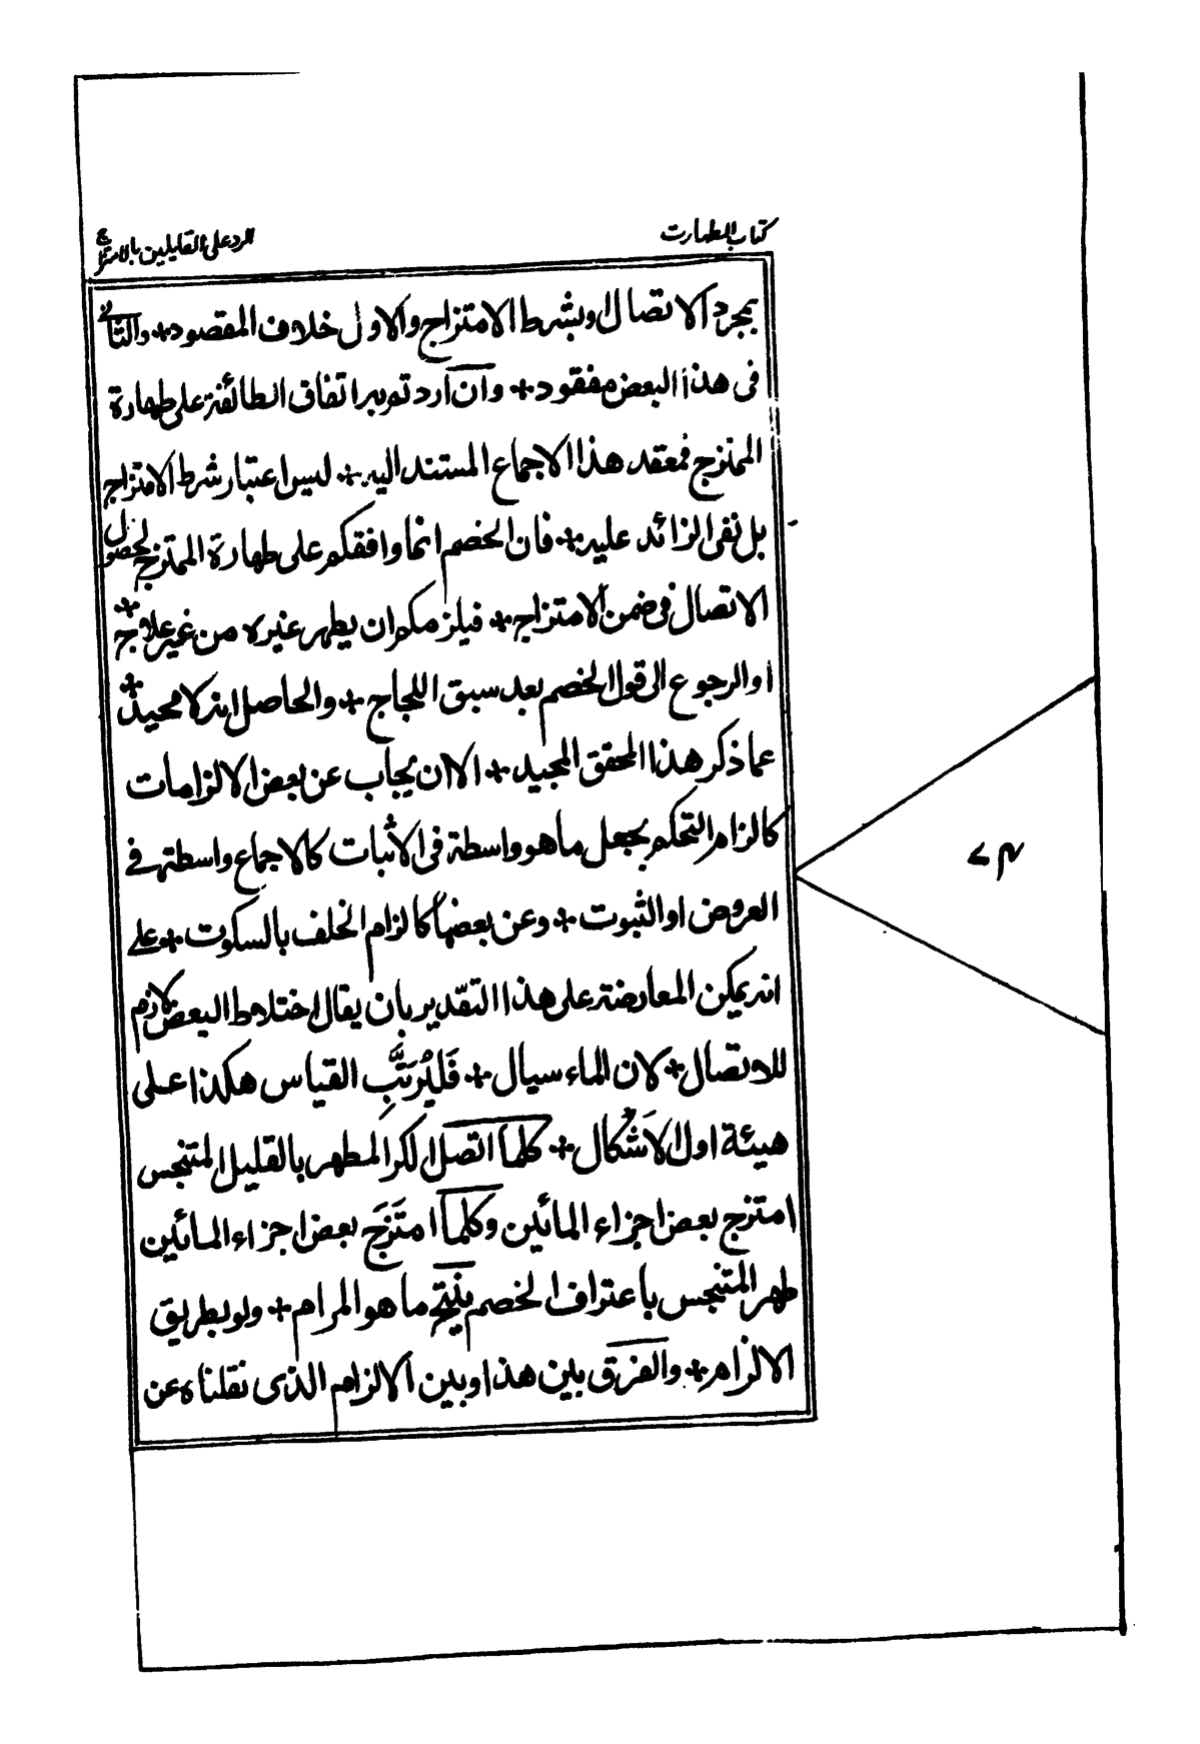 كتاب الطهارت
الرد على القايلين بالامتزاج
بمجرد الاتصال او بشرط الامتزاج والاول خلاف المقصود + والثاني
فى هذا البعض مفقود + وان اردتم به اتفاق الطائفة على طهارة
الممتزج فمعقد هذا الاجماع المستند اليه + ليس اعتبار شرط الامتزاج
بل نفى الزائد عليه + فان الخصم انما وافقكم على طهارة الممتزج لحصول
الاتصال فى ضمن الامتزاج + فيلزمكم ان يطهر غيره من غير علاج +
او الرجوع الى قول الخصم بعد سبق اللجاج + والحاصل انه لا محيد +
عما ذكر هذا المحقق المجيد + الا ان يجاب عن بعض الالزامات
كالزام التحكم بجعل ما هو واسطة فى الاثبات كالاجماع واسطة فى
العروض او الثبوت + وعن بعضها كالزام الخلف بالسكوت + وعلى
انه يمكن المعارضة على هذا التقدير بان يقال اختلاط البعض لازم
للاتصال + لان الماء سيال + فَلْيُرَتَّبِ القياس هكذا على
هيئة اول الاَشْكال + كلما اتصل الكر المطهر بالقليل المتنجس
امتزج بعض اجزاء المائين وكلما امتَزَجَ بعض اجزاء المائين
طهر المتنجس باعتراف الخصم ينتج ما هو المرام + ولو بطريق
الالزام + والفرق بين هذا وبين الالزام الذى نقلناه عن